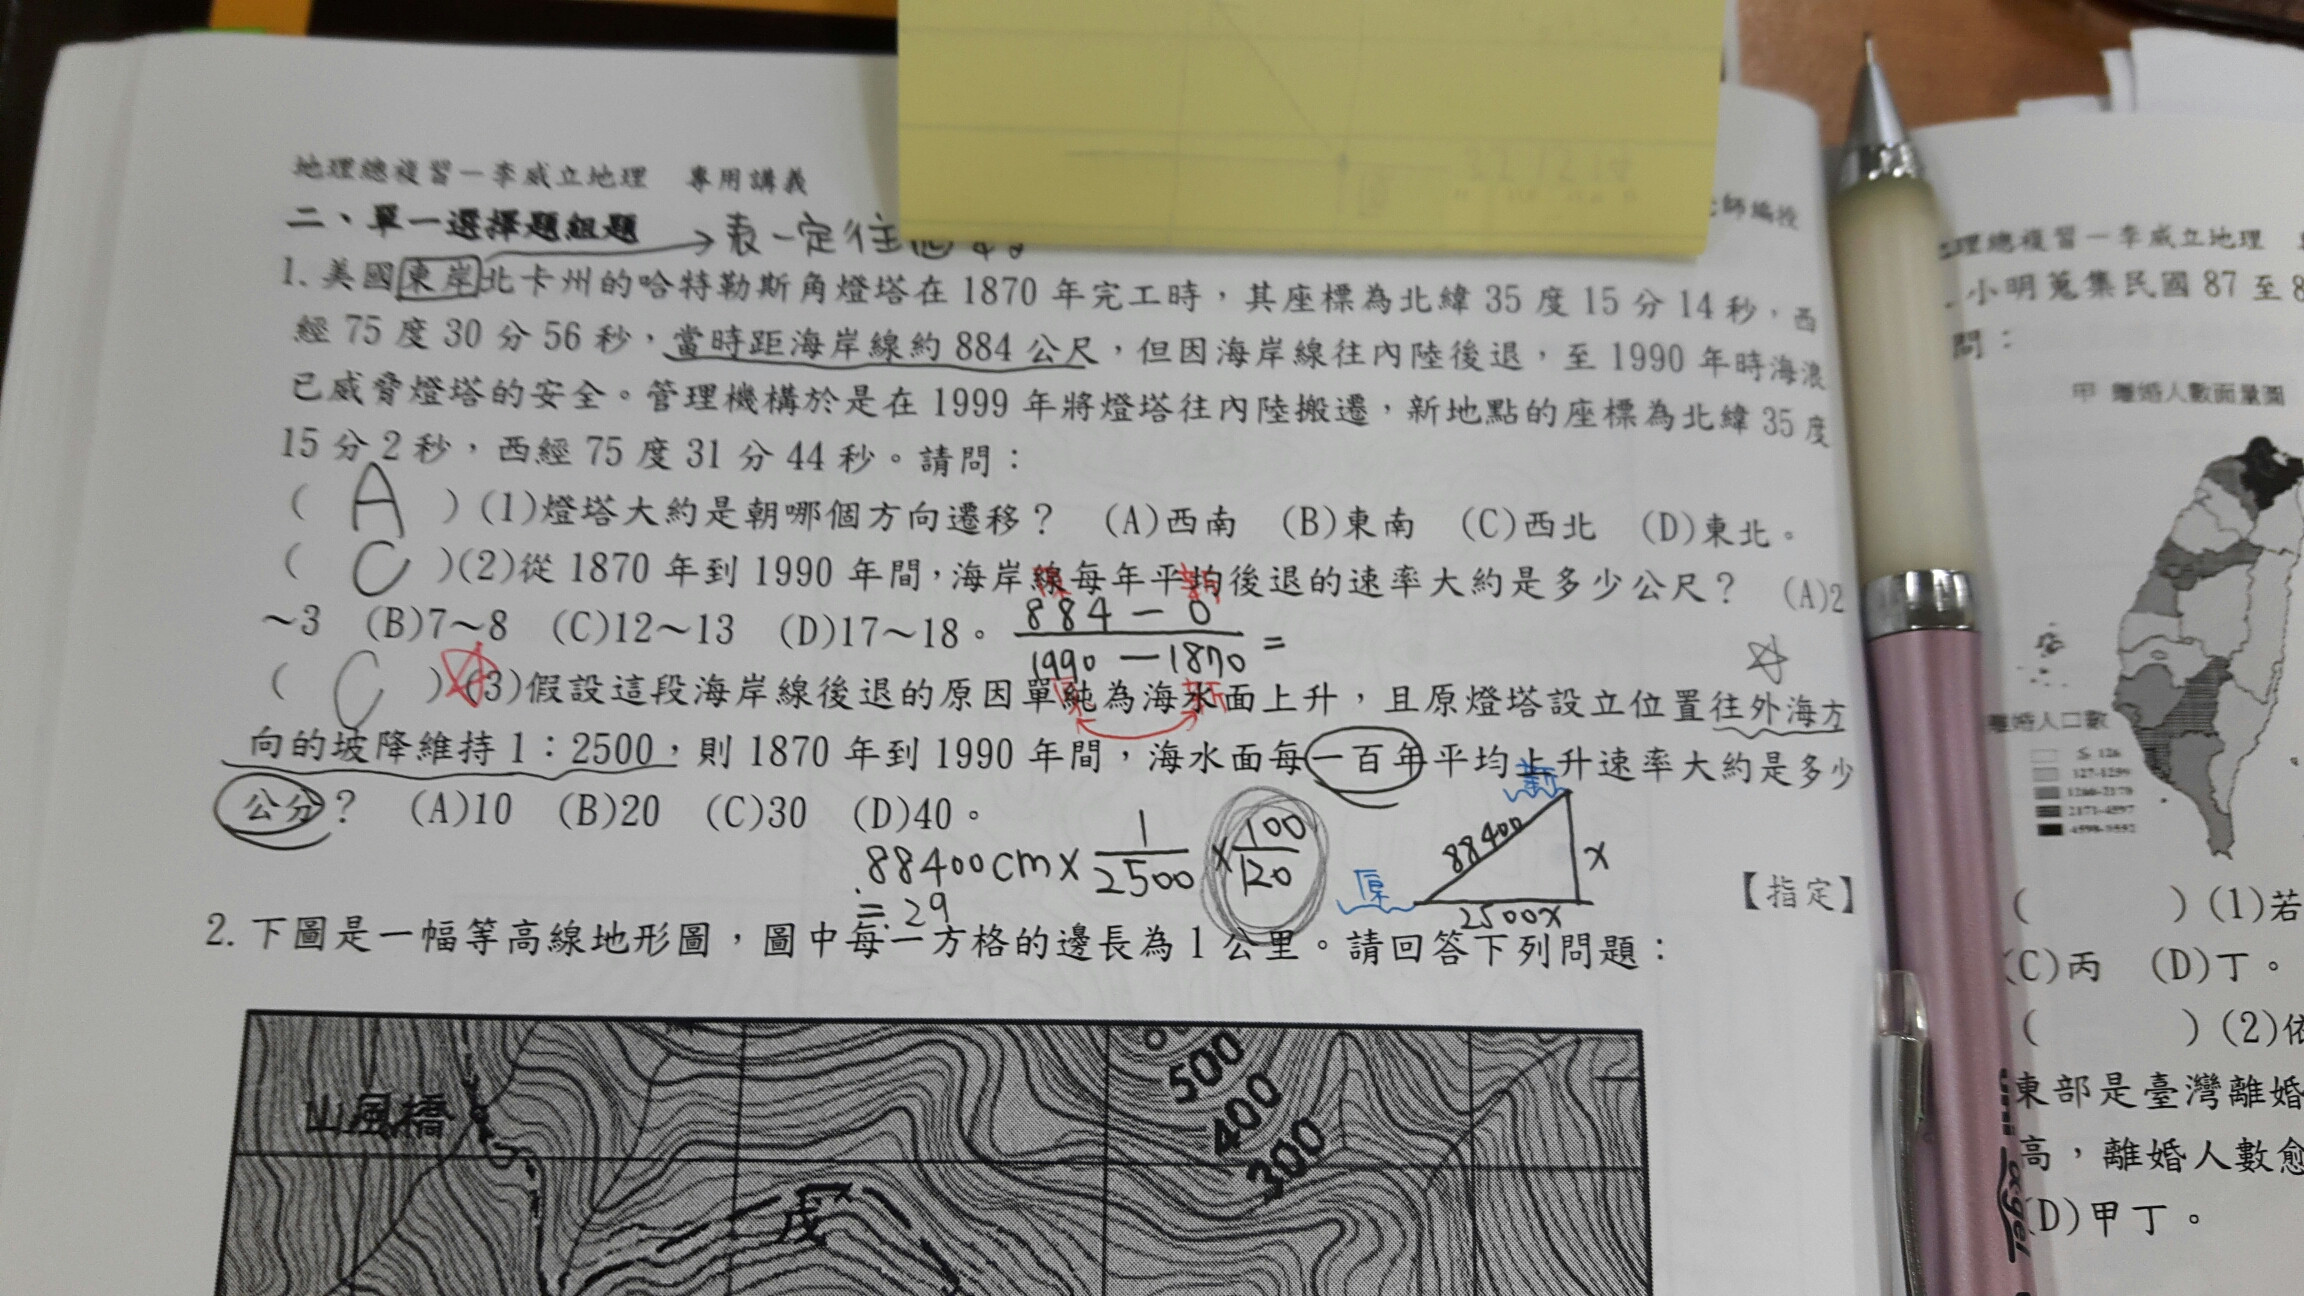 地理總複習－李威立地理 專用講義
師編授
二、單一選擇題組題
→表一定往
1.美國東岸北卡州的哈特勒斯角燈塔在1870年完工時，其座標為北緯35度15分14秒，西
經75度30分56秒，當時距海岸線約884公尺，但因海岸線往內陸後退，至1990年時海浪
已威脅燈塔的安全。管理機構於是在1999年將燈塔往內陸搬遷，新地點的座標為北緯35度
15分2秒，西經75度31分44秒。請問：
( A )(1)燈塔大約是朝哪個方向遷移？ (A)西南 (B)東南 (C)西北 (D)東北。
( C )(2)從1870年到1990年間，海岸線每年平均後退的速率大約是多少公尺？ (A)2
～3 (B)7～8 (C)12～13 (D)17～18。
884－0
1990－1870
=
( C )(3)假設這段海岸線後退的原因單純為海水面上升，且原燈塔設立位置往外海方
向的坡降維持1：2500，則1870年到1990年間，海水面每一百年平均上升速率大約是多少
公分？ (A)10 (B)20 (C)30 (D)40。
88400cm×1/2500×100/120
≒29
新
88400
x
原
2500x
【指定】
2.下圖是一幅等高線地形圖，圖中每一方格的邊長為1公里。請回答下列問題：
500
400
300
山風橋
戊
理總複習－李威立地理
小明蒐集民國87至8
問：
甲 離婚人數面量圖
離婚人口數
≦126
127-1259
1260-2170
2171-4597
4598-9552
( )(1)若
(C)丙 (D)丁。
( )(2)依
東部是臺灣離婚
高，離婚人數愈
(D)甲丁。
uni